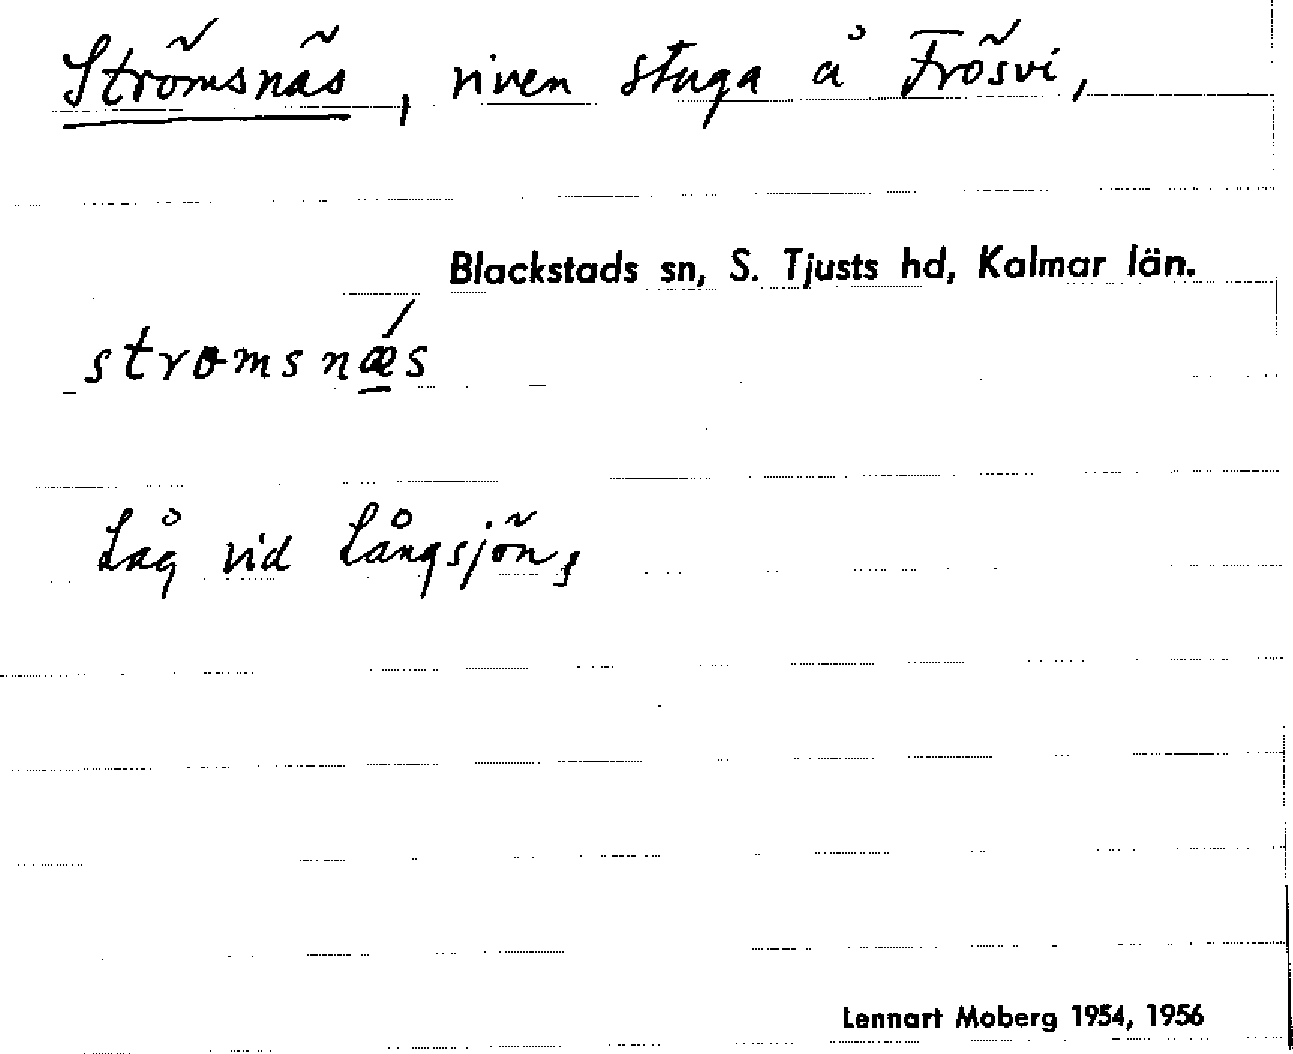 Strömsnäs, riven stuga å Frösvi,
Blackstads sn, S. Tjusts hd, Kalmar län.
strɵmsnǽs
Låg vid Långsjön,
Lennart Moberg 1954, 1956